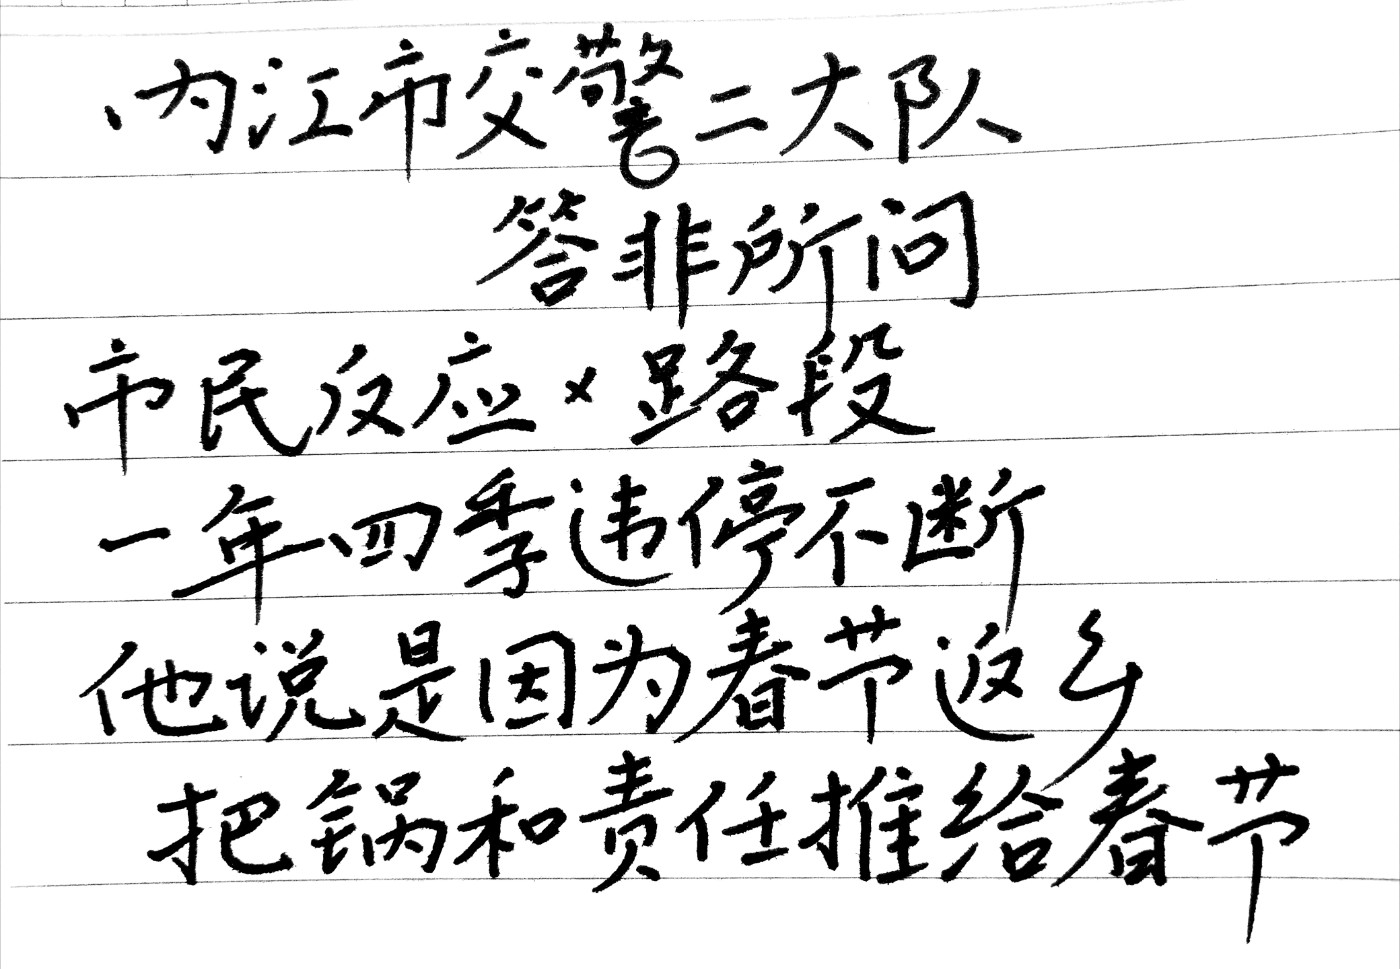 内江市交警二大队
答非所问
市民反应×路段
一年四季违停不断
他说是因为春节返乡
把锅和责任推给春节